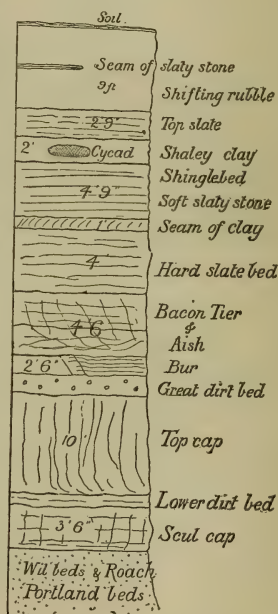 Soil
Seam of slaty stone
9 ft
Shifting rubble
2' 9" Top slate
2' Cycad Shaley clay
Shinglebed
4' 9"
Soft slaty stone
1" Seam of clay
4'
Hard slate bed
Bacon Tier
4' 6" &
Aish
2' 6" Bur
Great dirt bed
10' Top cap
Lower dirt bed
3' 6" Scul cap
Wil beds & Roach
Portland beds